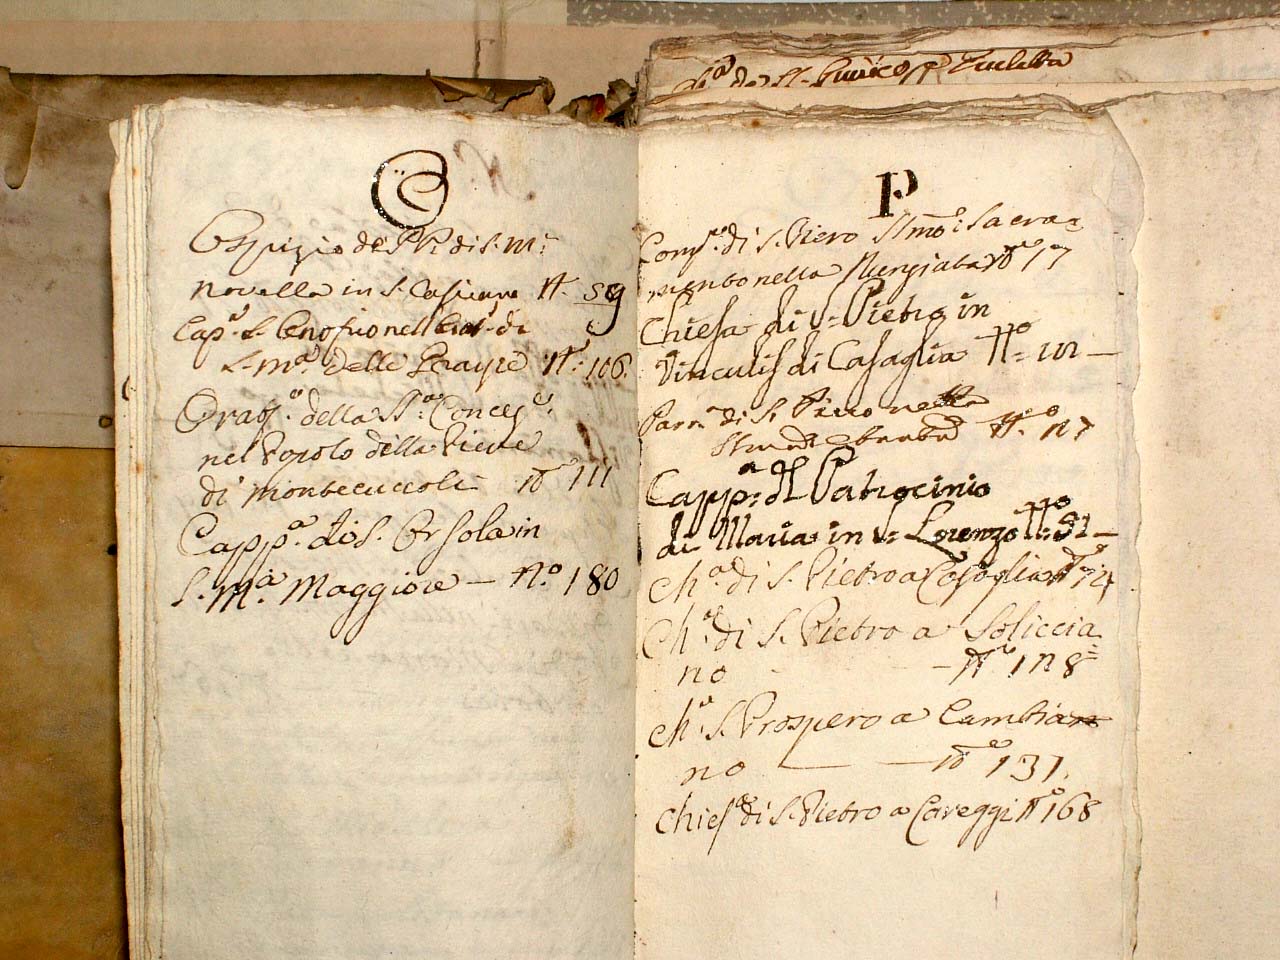 O
Ospizio de PP. di S. M:
novella in S. Casciano N. 59
Cap.a S. Onofrio nell di
S. M.a delle N. 106.
Orat.o della SS.a Concez.e
nel Popolo della Pieve
di Montecuccoli No 111
Capp.a di S. Orsola in
S. M.a Maggiore — N.o 180
di S.
P
Comp.a di S. Piero SSmo: Sacra=
mento nella No 77
Chiesa di S: Pietro in
Vinculis di Casaglia No = 101 —
di S. Piero nella
No 127
Capp:a dl Patrocinio
di Maria in S: Lorenzo No: 51 —
Ch.a di S. Pietro a Casaglia No 74
Ch.a di S. Pietro a Soliccia=
no — No 128
Ch.a S. Prospero a Cambia
no — — No 131.
Chies.a di S. Pietro a Careggi No 168